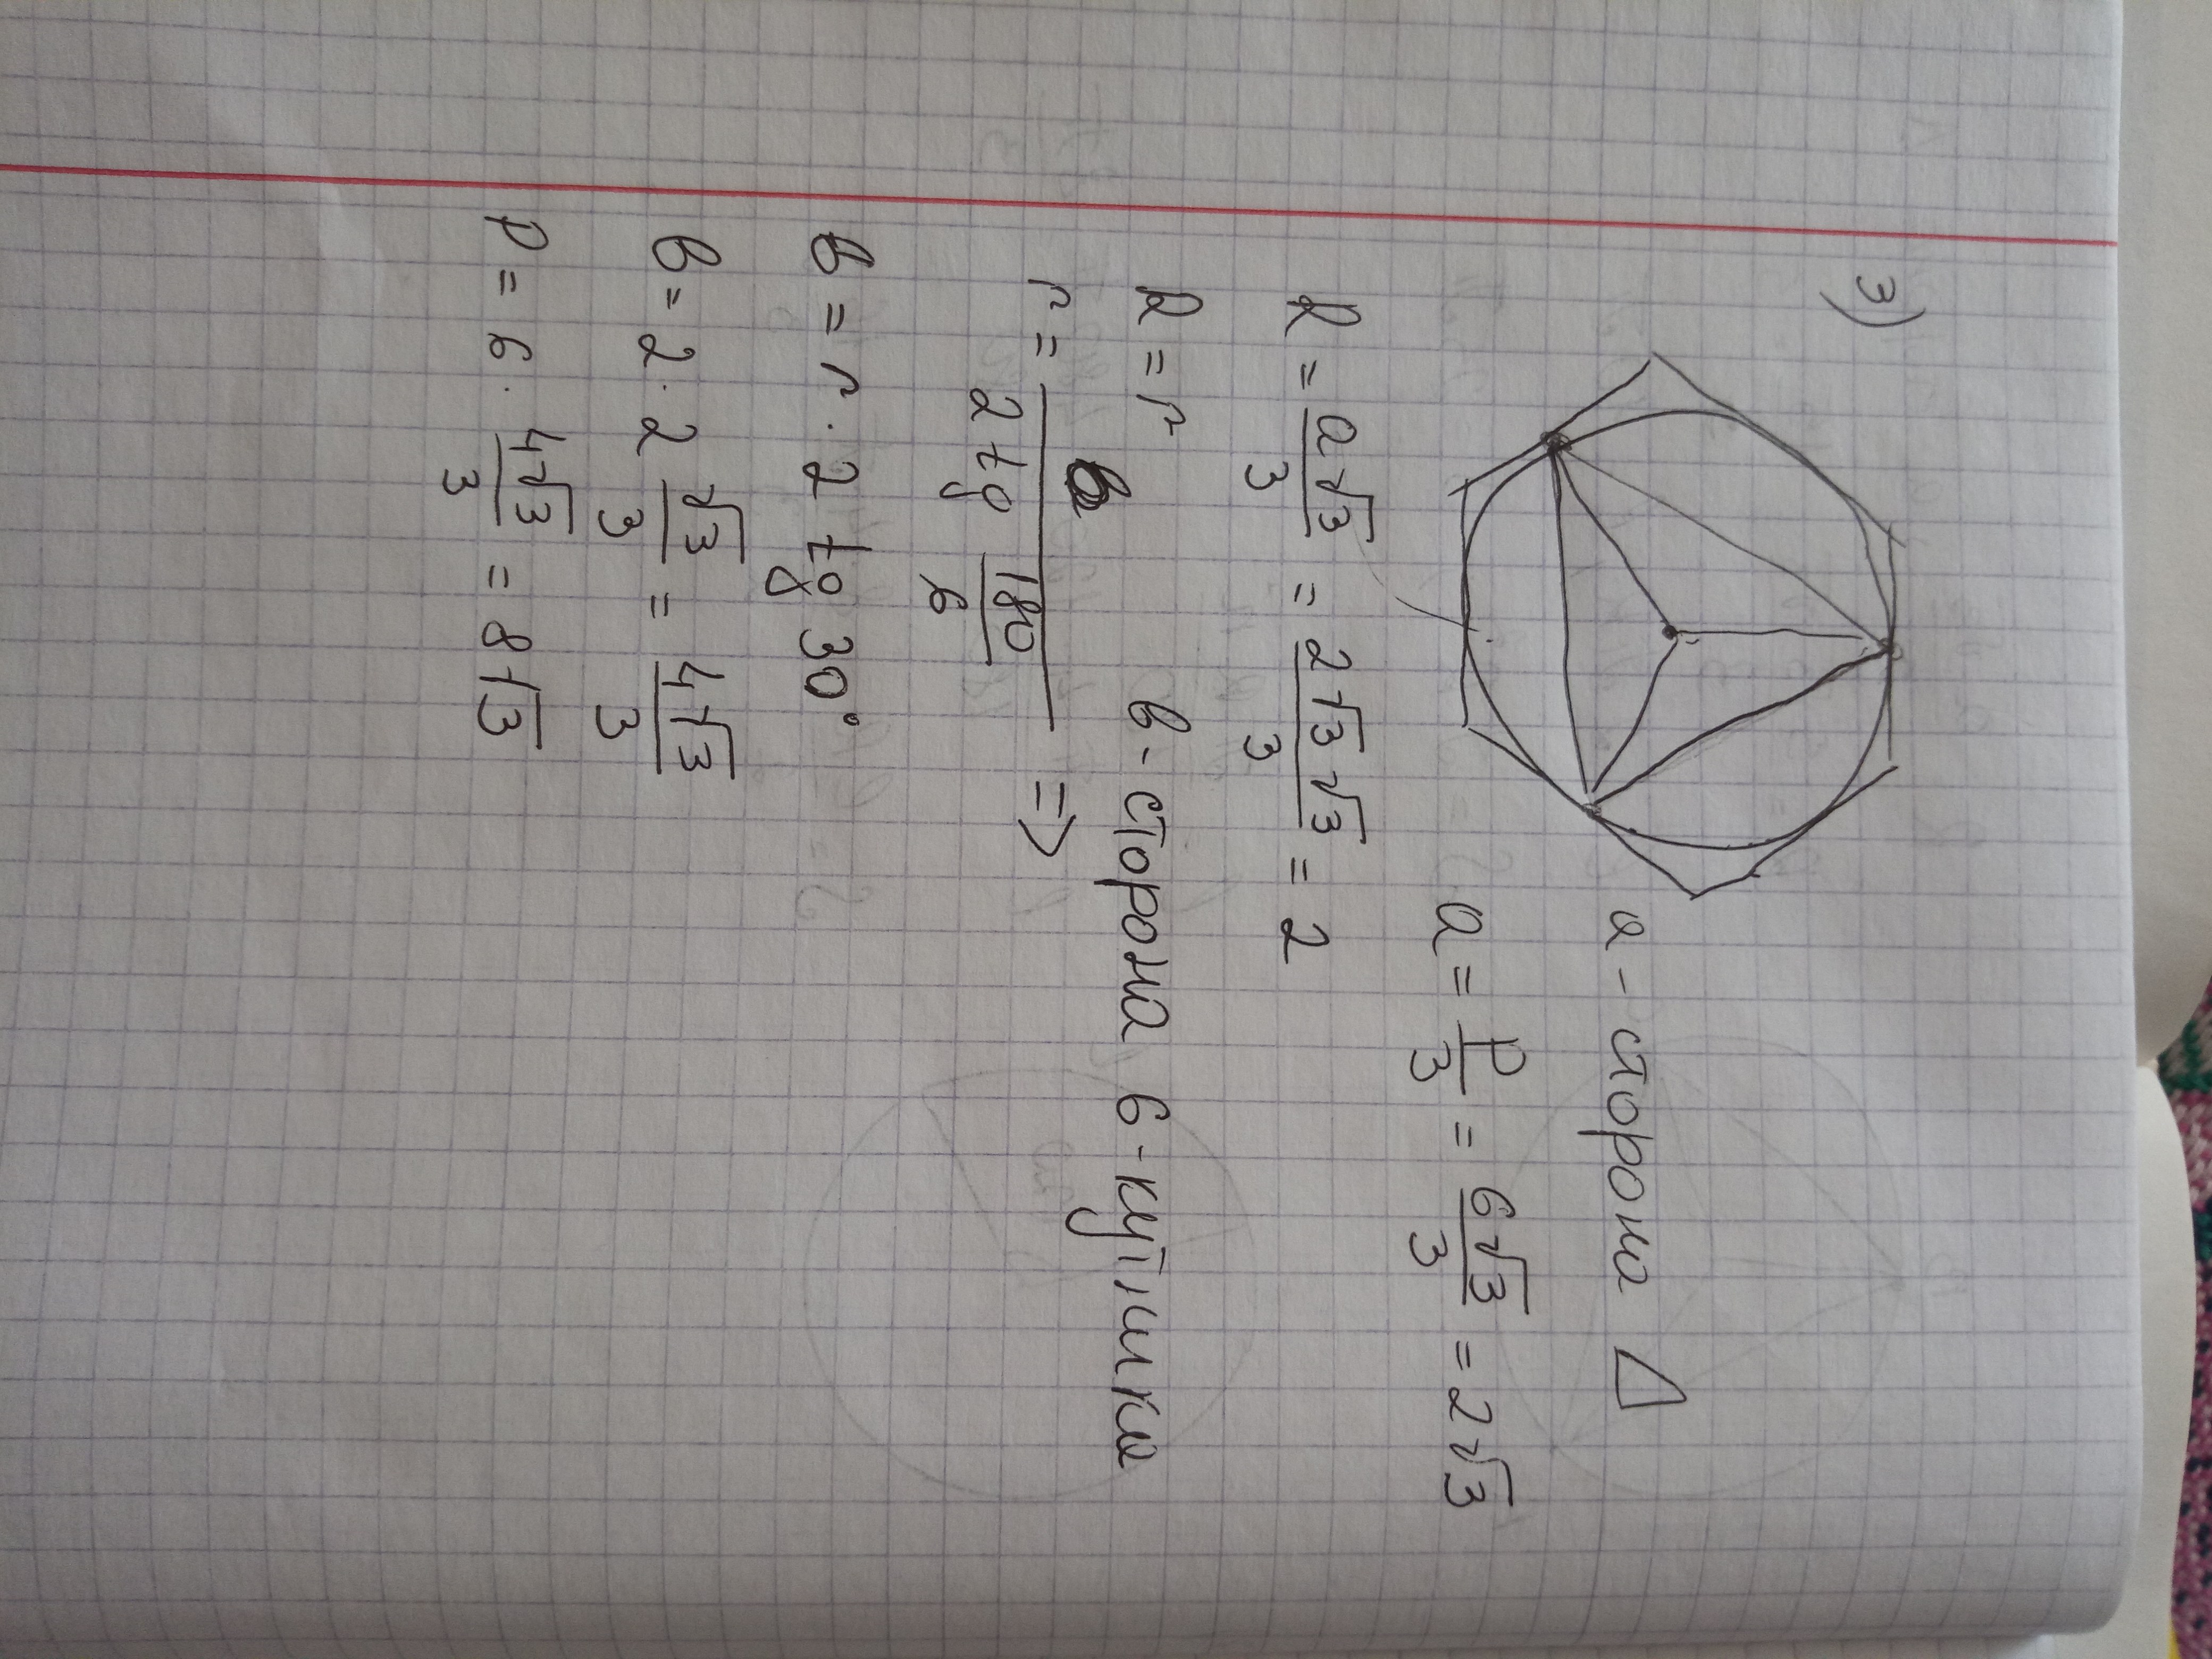 3)
a - сторона △
a = P/3 = 6√3/3 = 2√3
R = a√3/3 = 2√3√3/3 = 2
R = r
в - сторона 6-кутника
r = в/(2 tg 180/6) =>
в = r · 2 tg 30°
в = 2 · 2 √3/3 = 4√3/3
P = 6 · 4√3/3 = 8√3